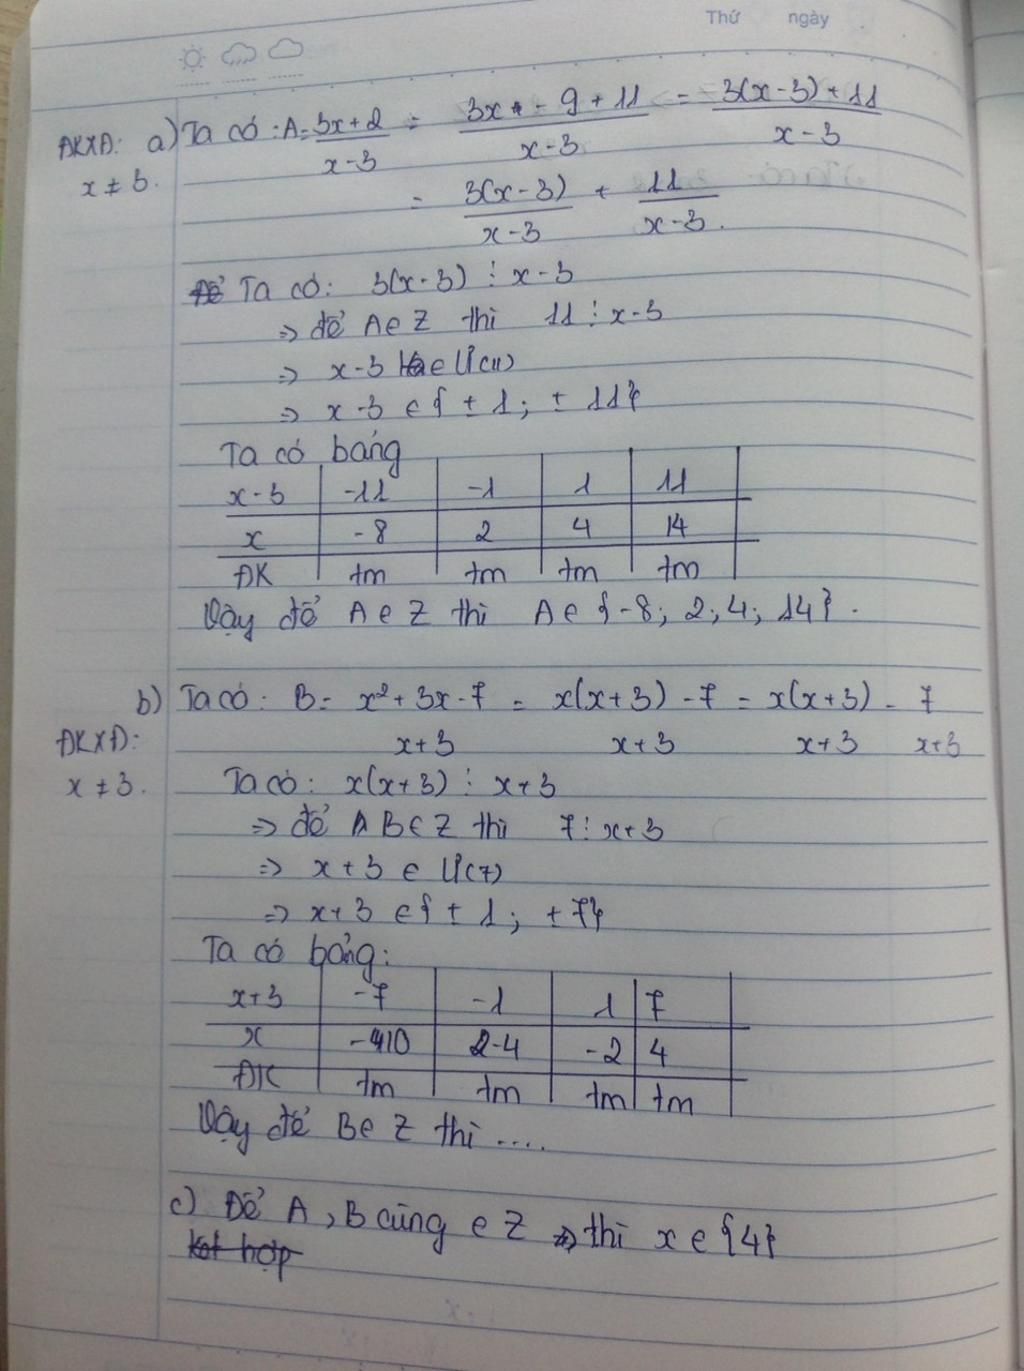 Thứ ngày
ĐKXĐ: a) Ta có : A = 3x+2 / x-3 = 3x - 9 + 11 / x-3 = 3(x-3) + 11 / x-3
x ≠ 3.
= 3(x-3) / x-3 + 11 / x-3.
Ta có: 3(x-3) ⋮ x-3
=> để A∈Z thì 11 ⋮ x-3
=> x-3 ∈ Ư(11)
=> x-3 ∈ { ± 1 ; ± 11}
Ta có bảng
x-3 | -11 | -1 | 1 | 11
x | -8 | 2 | 4 | 14
ĐK | tm | tm | tm | tm
Vậy để A∈Z thì A∈ {-8; 2; 4; 14}.
b) Ta có: B = x²+3x-7 / x+3 = x(x+3) -7 / x+3 = x(x+3) / x+3 - 7 / x+3
ĐKXĐ:
x ≠ 3.
Ta có: x(x+3) ⋮ x+3
=> để B∈Z thì 7 ⋮ x+3
=> x+3 ∈ Ư(7)
=> x+3 ∈ { ± 1 ; ± 7}
Ta có bảng:
x+3 | -7 | -1 | 1 | 7
x | -10 | -4 | -2 | 4
ĐK | tm | tm | tm | tm
Vậy để B∈Z thì ....
c) Để A, B cùng ∈ Z thì x ∈ {4}
Kết hợp